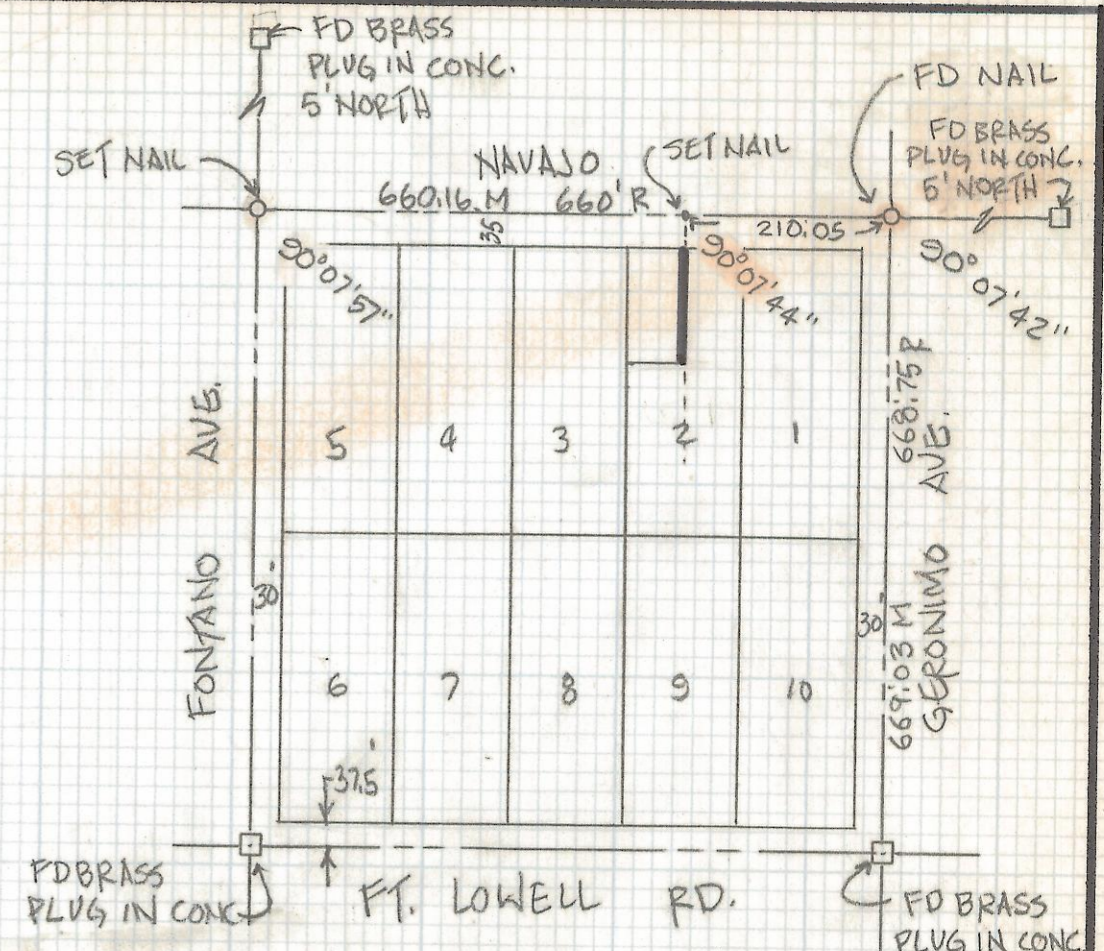 FD BRASS
PLUG IN CONC.
5' NORTH
FD NAIL
FD BRASS
PLUG IN CONC.
5' NORTH
SET NAIL
NAVAJO
SET NAIL
660.16 M 660' R
35'
210.05
90°07'57"
90°07'44"
90°07'42"
FONTANO AVE.
5
4
3
2
1
668.75 R
669.03 M
GERONIMO AVE.
30'
30'
6
7
8
9
10
37.5'
FD BRASS
PLUG IN CONC
FT. LOWELL RD.
FD BRASS
PLUG IN CONC